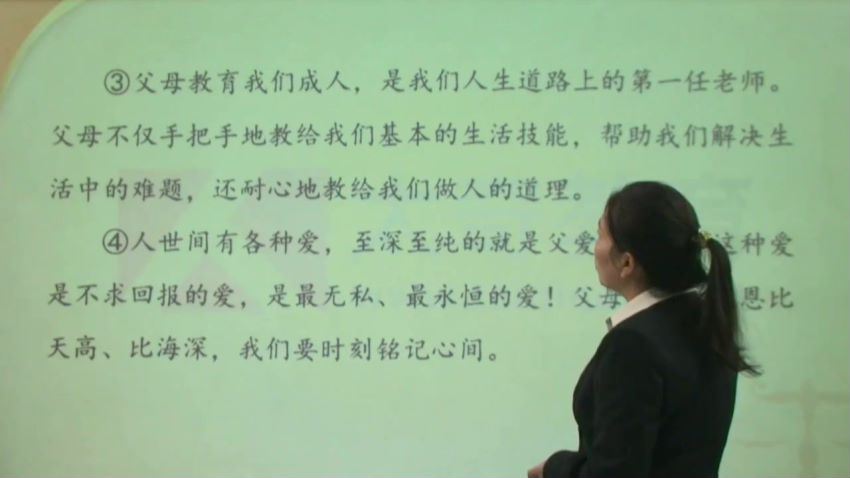 ③父母教育我们成人，是我们人生道路上的第一任老师。
父母不仅手把手地教给我们基本的生活技能，帮助我们解决生
活中的难题，还耐心地教给我们做人的道理。
④人世间有各种爱，至深至纯的就是父爱 这种爱
是不求回报的爱，是最无私、最永恒的爱！父母 恩比
天高、比海深，我们要时刻铭记心间。